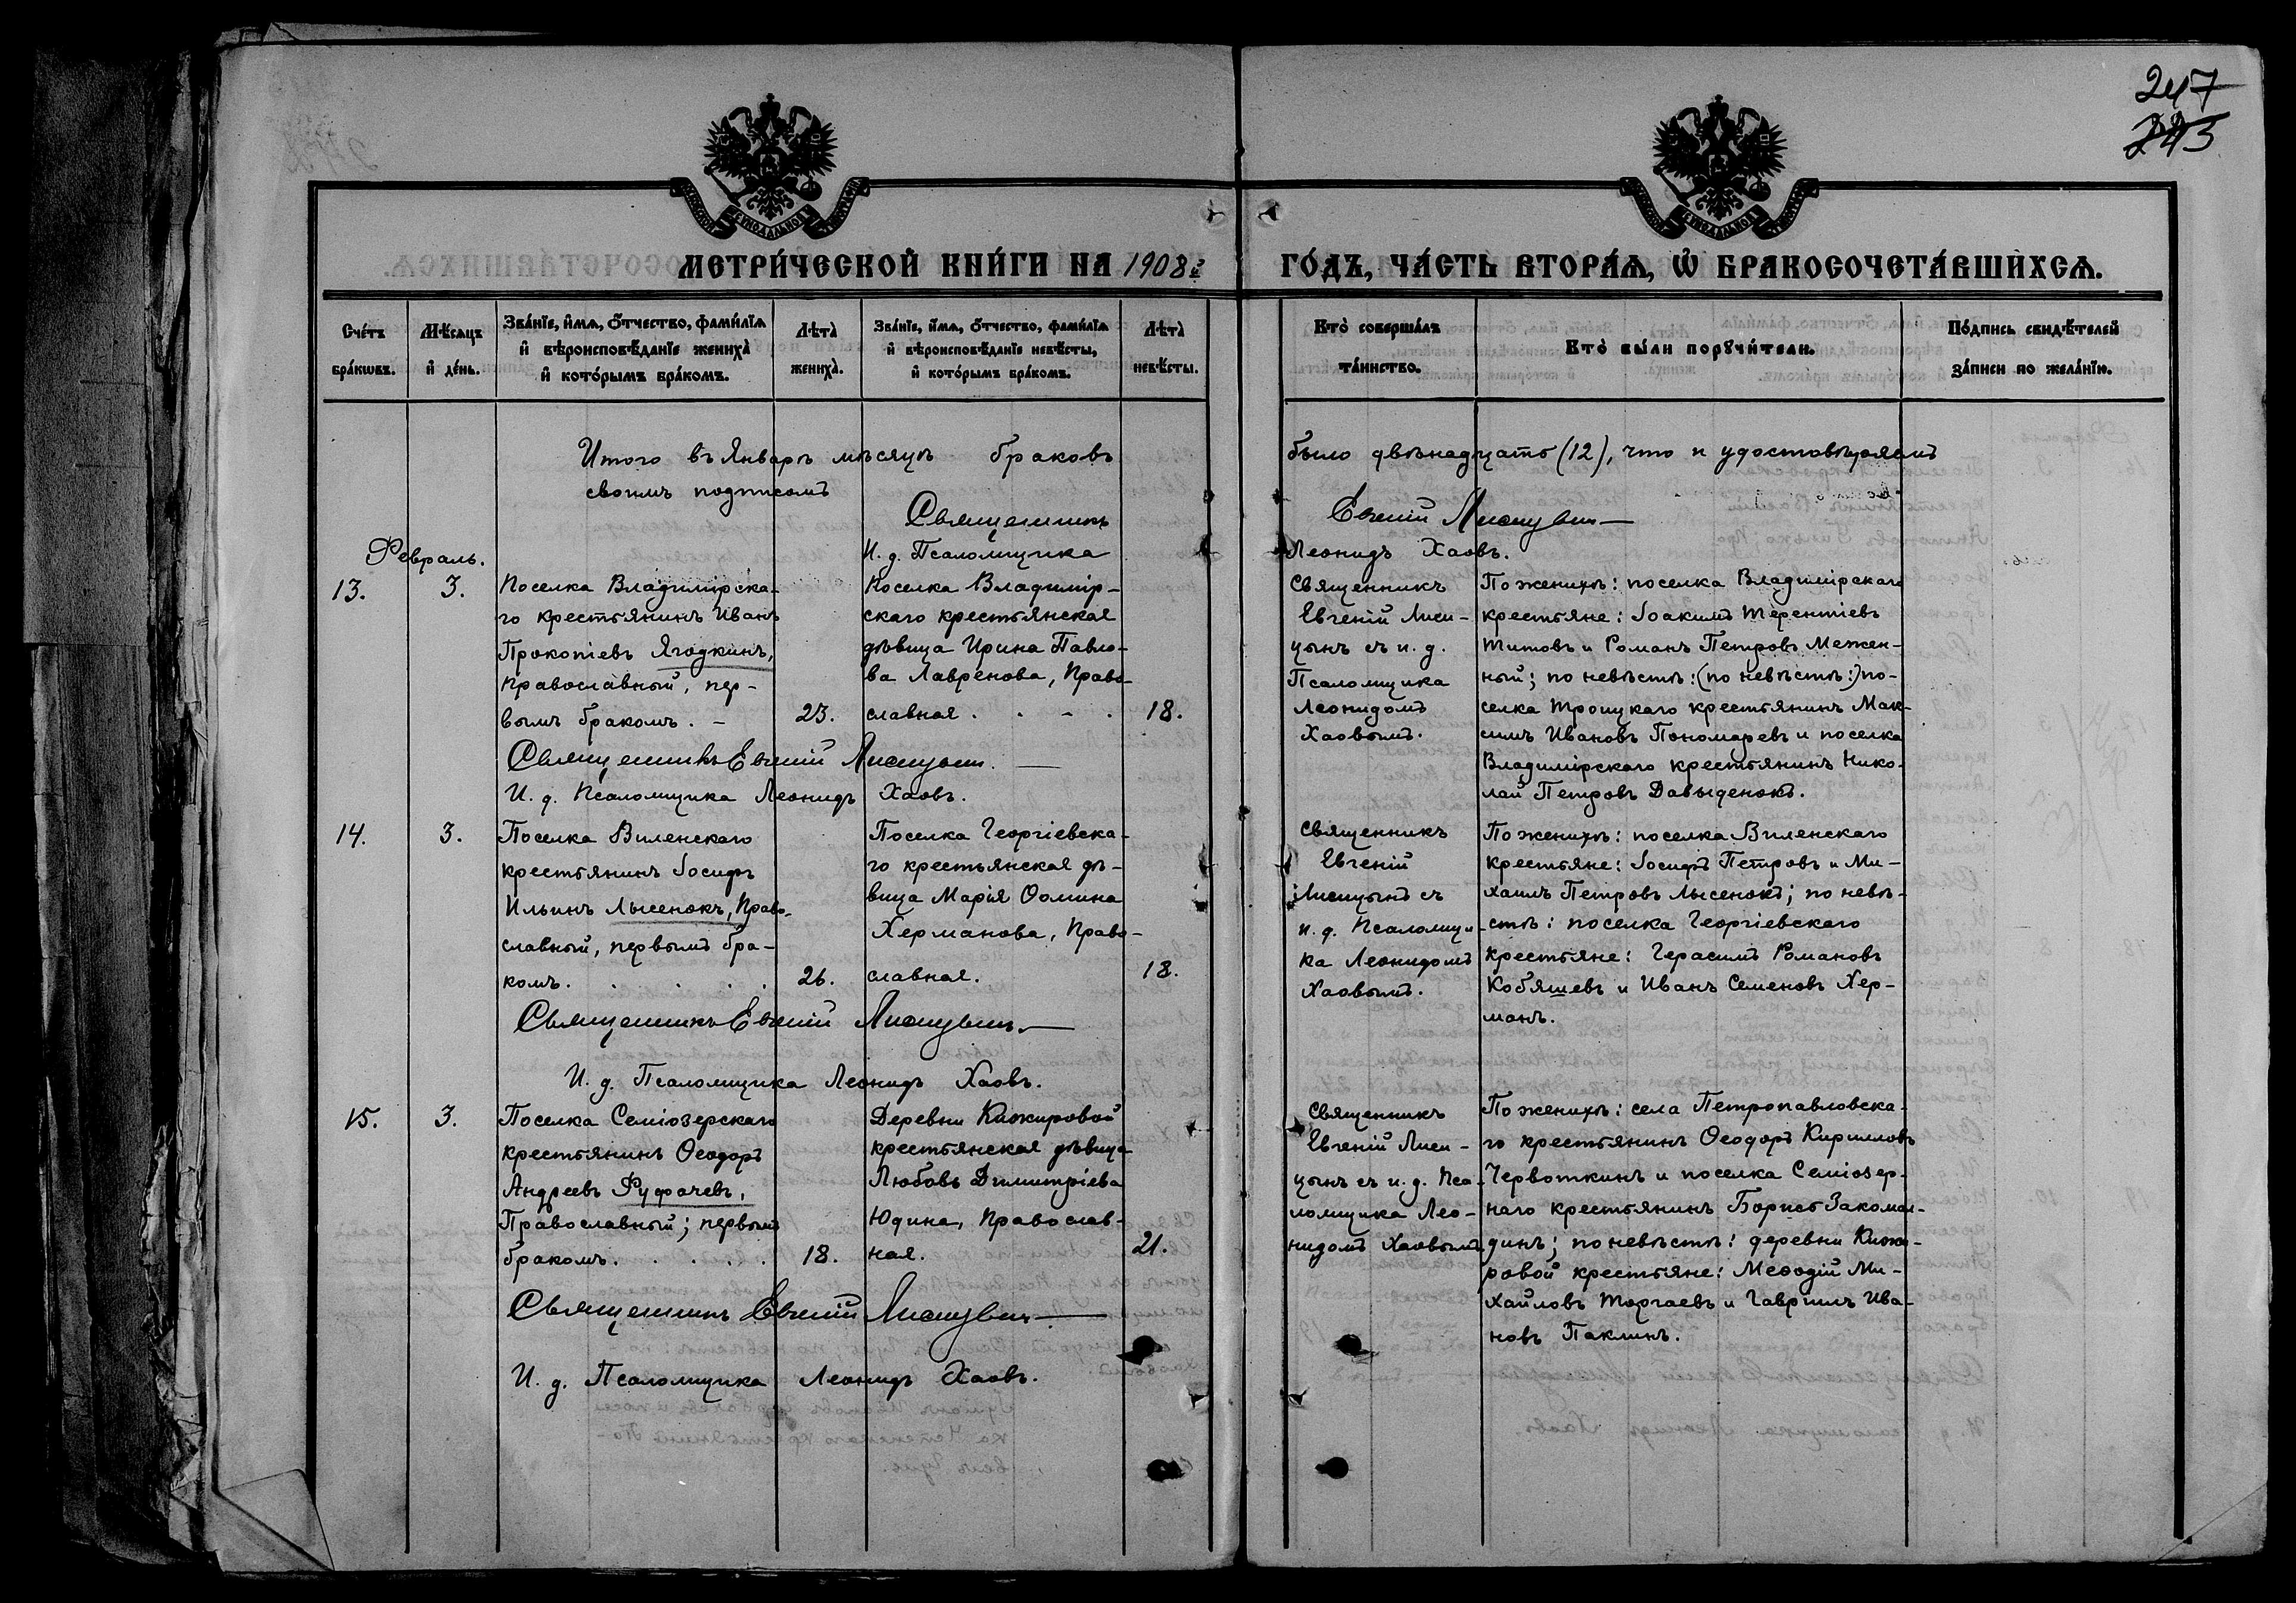 247
243
МЕТРИ́ЧЕСКОЙ КНИ́ГИ НА 1908й
ГО́ДЪ, ЧА́СТЬ ВТОРА́Ѧ, Ѽ БРАКОСОЧЕТА́ВШИХСѦ.
Сче́тъ бра́кѡвъ.
Мѣ́сѧцъ и҆ де́нь.
Зва́нїе, и҆́мѧ, ѻ҆́тчество, фами́лїѧ
и҆ вѣроисповѣ́данїе жениха̀
и҆ кото́рымъ бра́комъ.
Лѣта̀ жениха̀.
Зва́нїе, и҆́мѧ, ѻ҆́тчество, фами́лїѧ
и҆ вѣроисповѣ́данїе невѣ́сты,
и҆ кото́рымъ бра́комъ.
Лѣта̀ невѣ́сты.
Кто̀ соверша́лъ
та́инство.
Кто̀ бы́ли порꙋчи́тели.
По́дпись свидѣ́телей
за́писи по жела́нїю.
Итого въ Январѣ мѣсяцѣ браковъ было двѣнадцать (12), что и удостовѣряемъ
своимъ подписомъ
Священникъ Евгеній Лисицынъ
И. д. Псаломщика Леонидъ Хаовъ.
Февраль.
13.
3.
Поселка Владимірска-
го крестьянинъ Иванъ
Прокопіевъ Ягодкинъ,
православный, пер-
вымъ бракомъ. -
23.
Поселка Владимір-
скаго крестьянская
дѣвица Ирина Павло-
ва Лавренова, Право-
славная.
18.
Священникъ
Евгеній Лиси-
цынъ съ и. д.
Псаломщика
Леонидомъ
Хаовымъ.
По женихѣ: поселка Владимірскаго
крестьяне: Іоакимъ Терентіевъ
Титовъ и Романъ Петровъ Межен-
ный; по невѣстѣ: (по невѣстѣ:) по-
селка Троицкаго крестьянинъ Мак-
симъ Ивановъ Пономаревъ и поселка
Владимірскаго крестьянинъ Нико-
лай Петровъ Давыденокъ.
Священникъ Евгеній Лисицынъ.
И. д. Псаломщика Леонидъ Хаовъ.
14.
3.
Поселка Виленскаго
крестьянинъ Іосифъ
Ильинъ Лысенокъ, Право-
славный, первымъ бра-
комъ.
26.
Поселка Георгіевска-
го крестьянская дѣ-
вица Марія Ѳомина
Херманова, Право-
славная.
18.
Священникъ
Евгеній
Лисицынъ съ
и. д. Псаломщи-
ка Леонидомъ
Хаовымъ.
По женихѣ: поселка Виленскаго
крестьяне: Іосифъ Петровъ и Ми-
хаилъ Петровъ Лысенокъ; по невѣ-
стѣ: поселка Георгіевскаго
крестьяне: Герасимъ Романовъ
Кобяшевъ и Иванъ Семеновъ Хер-
манъ.
Священникъ Евгеній Лисицынъ.
И. д. Псаломщика Леонидъ Хаовъ.
15.
3.
Поселка Семіозерскаго
крестьянинъ Ѳеодоръ
Андреевъ Руфачевъ,
Православный; первымъ
бракомъ.
18.
Деревни Кижировой
крестьянская дѣвица
Любовь Димитріева
Юдина, Православ-
ная.
21.
Священникъ
Евгеній Лиси-
цынъ съ и. д. Пса-
ломщика Лео-
нидомъ Хаовымъ.
По женихѣ: села Петропавловска-
го крестьянинъ Ѳеодоръ Кирилловъ
Червоткинъ и поселка Семіозер-
наго крестьянинъ Борисъ Закомал-
динъ; по невѣстѣ: деревни Кижи-
ровой крестьяне: Меѳодій Ми-
хайловъ Торгаевъ и Гавріилъ Ива-
новъ Паклинъ.
Священникъ Евгеній Лисицынъ
И. д. Псаломщика Леонидъ Хаовъ.